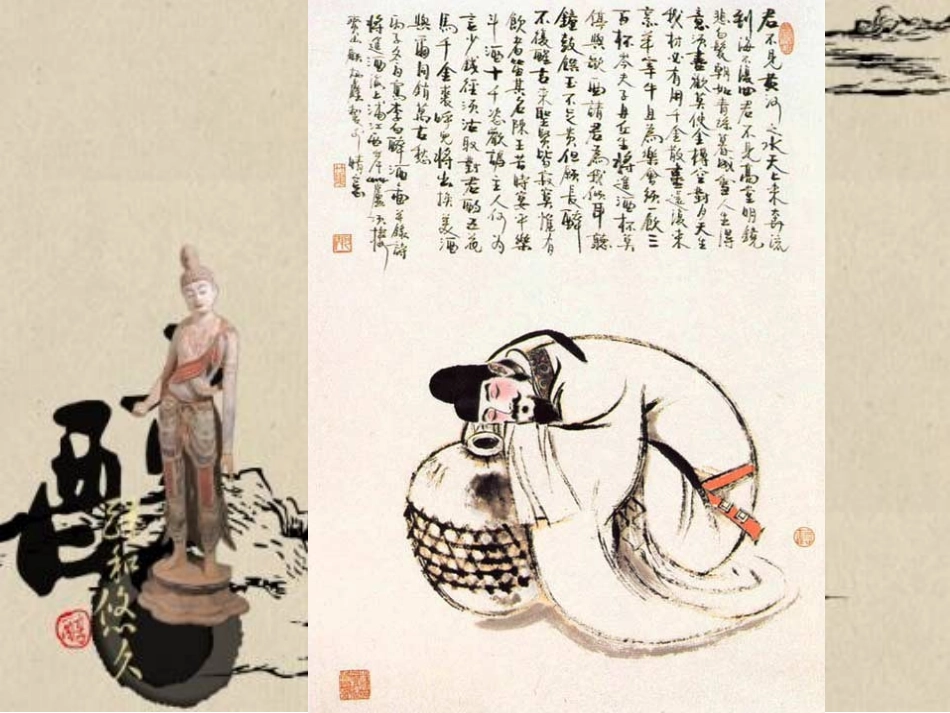 君不見黃河之水天上来奔流
到海不復回君不見高堂明鏡
悲白髮朝如青絲暮成雪人生得
意須盡歡莫使金樽空對月天生
我材必有用千金散盡還復来
烹羊宰牛且為樂會須一飲三
百杯岑夫子丹丘生將進酒杯莫
停與歌一曲請君為我傾耳聽
鐘鼓饌玉不足貴但願長醉
不復醒古来聖賢皆寂寞惟有
飲者留其名陳王昔時宴平樂
斗酒十千恣歡謔主人何為
言少錢徑須沽取對君酌五花
馬千金裘呼兒將出換美酒
與爾同銷萬古愁
丙子冬月寫李白醉酒圖并錄詩
將進酒
和悠久